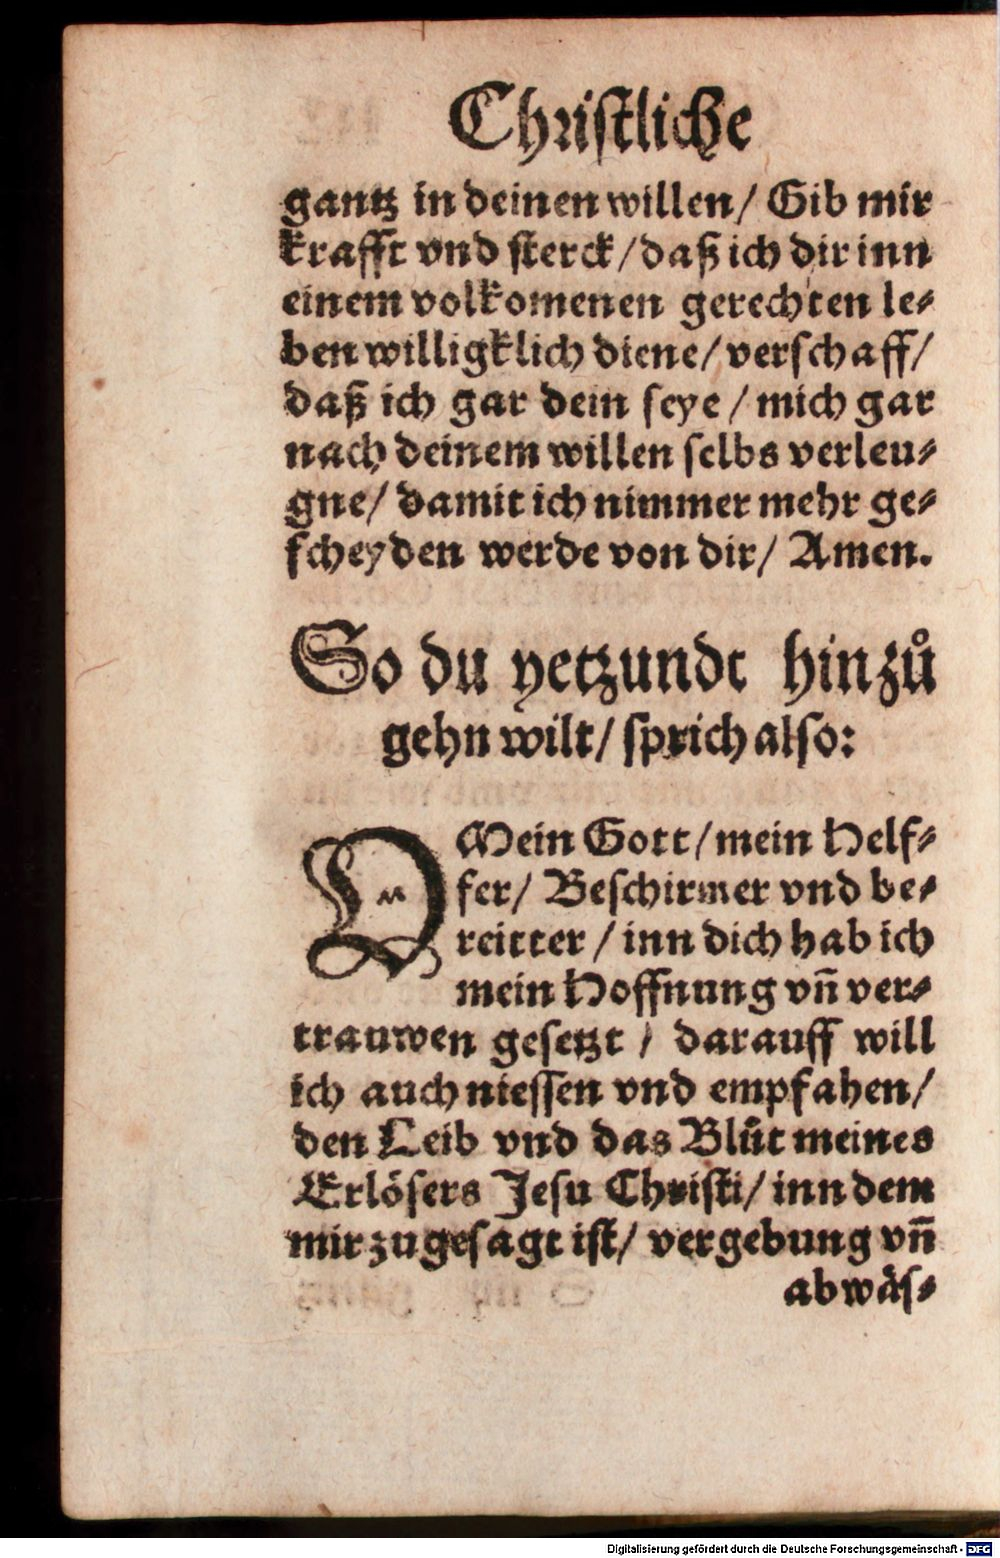 Christliche
gantz in deinen willen/ Gib mir
krafft vnd sterck/ daß ich dir inn
einem volkomenen gerechten le⸗
ben willigklich diene/ verschaff/
daß ich gar dein seye / mich gar
nach deinem willen selbs verleu⸗
gne/ damit ich nimmer mehr ge⸗
scheyden werde von dir/ Amen.
So du yetzundt hinzů
gehn wilt/ sprich also:
O Mein Gott/ mein Helf⸗
fer/ Beschirmer vnd be⸗
reitter / inn dich hab ich
mein Hoffnung vñ ver⸗
trauwen gesetzt / darauff will
ich auch niessen vnd empfahen/
den Leib vnd das Blůt meines
Erlösers Jesu Christi/ inn dem
mir zugesagt ist/ vergebung vñ
abwäs⸗
Digitalisierung gefördert durch die Deutsche Forschungsgemeinschaft - DFG